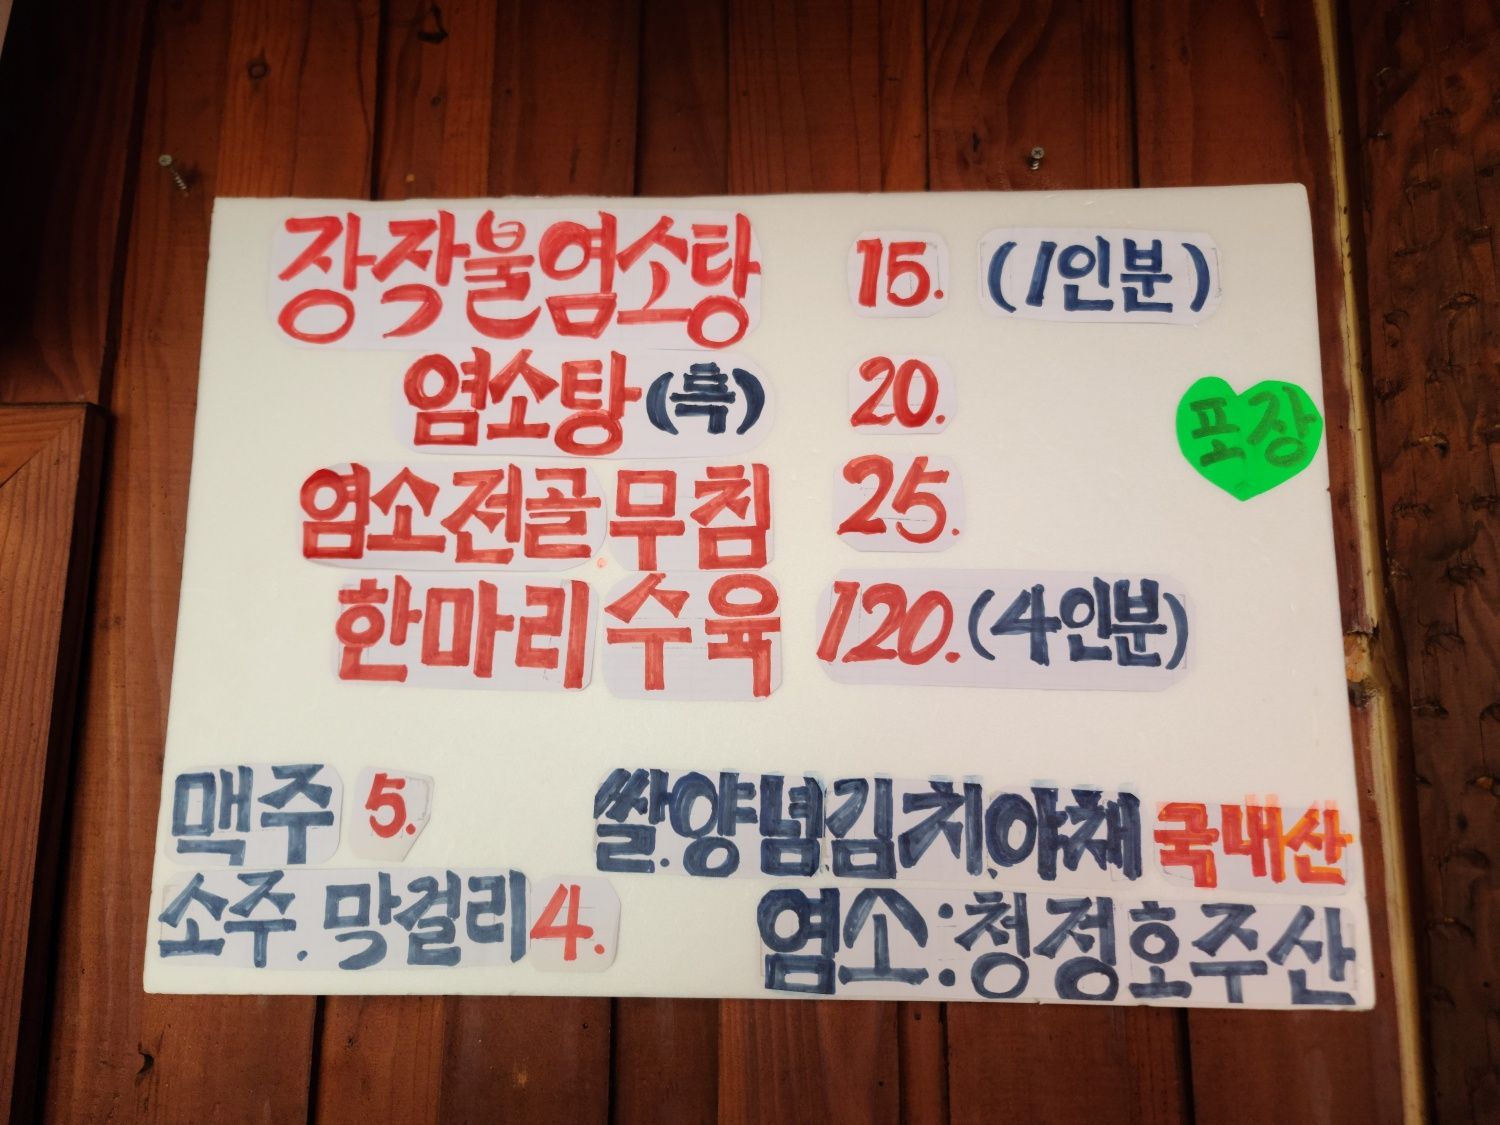 장작불염소탕 15. (1인분)
염소탕(특) 20.
포장
염소전골.무침 25.
한마리수육 120.(4인분)
맥주 5.
쌀.양념김치.야채 국내산
소주. 막걸리 4.
염소:청정호주산